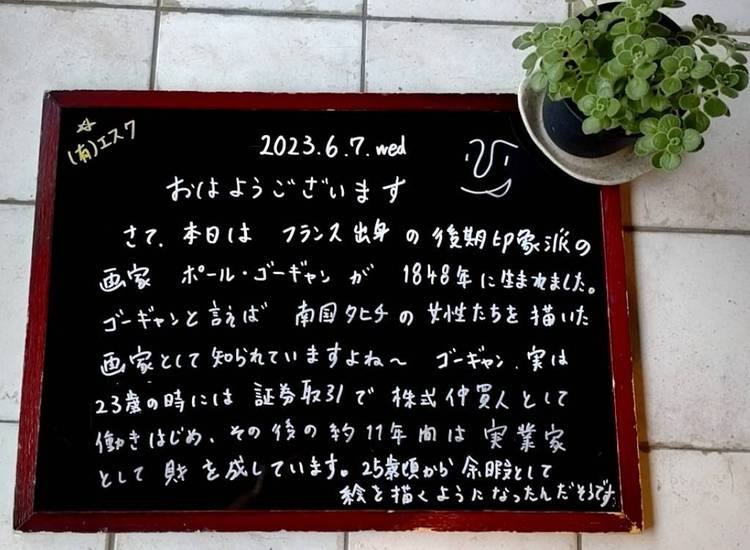 ☆
(有)エスク
2023.6.7.wed
おはようございます
さて、本日は フランス出身 の 後期印象派の
画家 ポール・ゴーギャン が 1848年に生まれました。
ゴーギャンと言えば 南国タヒチの女性たちを描いた
画家として知られていますよね〜 ゴーギャン、実は
23歳の時には 証券取引で 株式仲買人として
働きはじめ、その後の約11年間は実業家
として 財を成しています。25歳頃から 余暇として
絵を描くようになったんだそうです